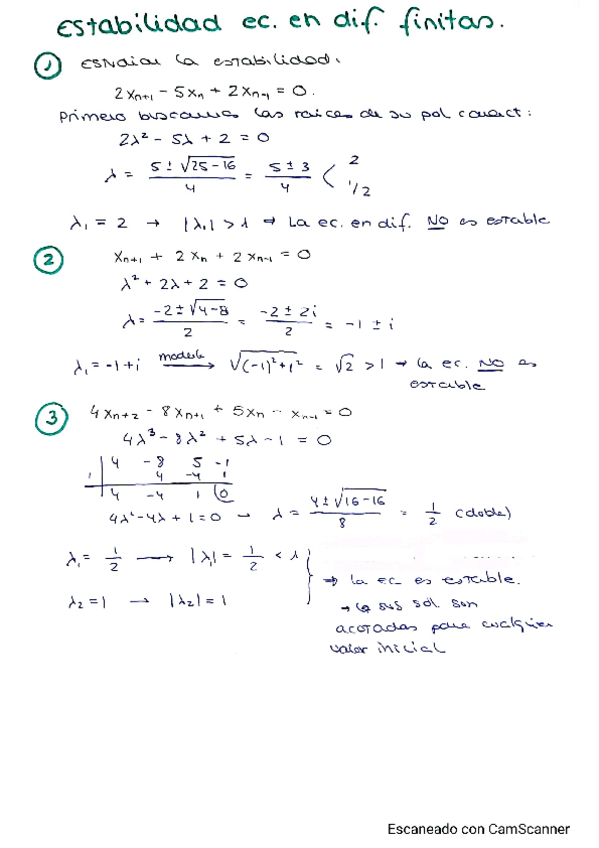 Estabilidad ec. en dif. finitas.
① Estudiar la estabilidad.
2xₙ₊₁ - 5xₙ + 2xₙ₋₁ = 0.
Primero buscamos las raices de su pol caract:
2λ² - 5λ + 2 = 0
λ = (5 ± √(25-16))/4 = (5 ± 3)/4 < 2 1/2
λ₁ = 2 → |λ₁| > 1 ⇒ La ec. en dif. NO es estable
② xₙ₊₁ + 2xₙ + 2xₙ₋₁ = 0
λ² + 2λ + 2 = 0
λ = (-2 ± √(4-8))/2 = (-2 ± 2i)/2 = -1 ± i
λ₁ = -1+i modulo→ √((-1)²+1²) = √2 > 1 → la ec. NO es
estable
③ 4xₙ₊₂ - 8xₙ₊₁ + 5xₙ - xₙ₋₁ = 0
4λ³ - 8λ² + 5λ - 1 = 0
4 -8 5 -1
1 4 -4 1
4 -4 1 0
4λ² - 4λ + 1 = 0 → λ = (4 ± √(16-16))/8 = 1/2 (doble)
λ₁ = 1/2 → |λ₁| = 1/2 < 1
⇒ la ec es estable.
λ₂ = 1 → |λ₂| = 1
→ sus sol. son
acotadas para cualquier
valor inicial
Escaneado con CamScanner